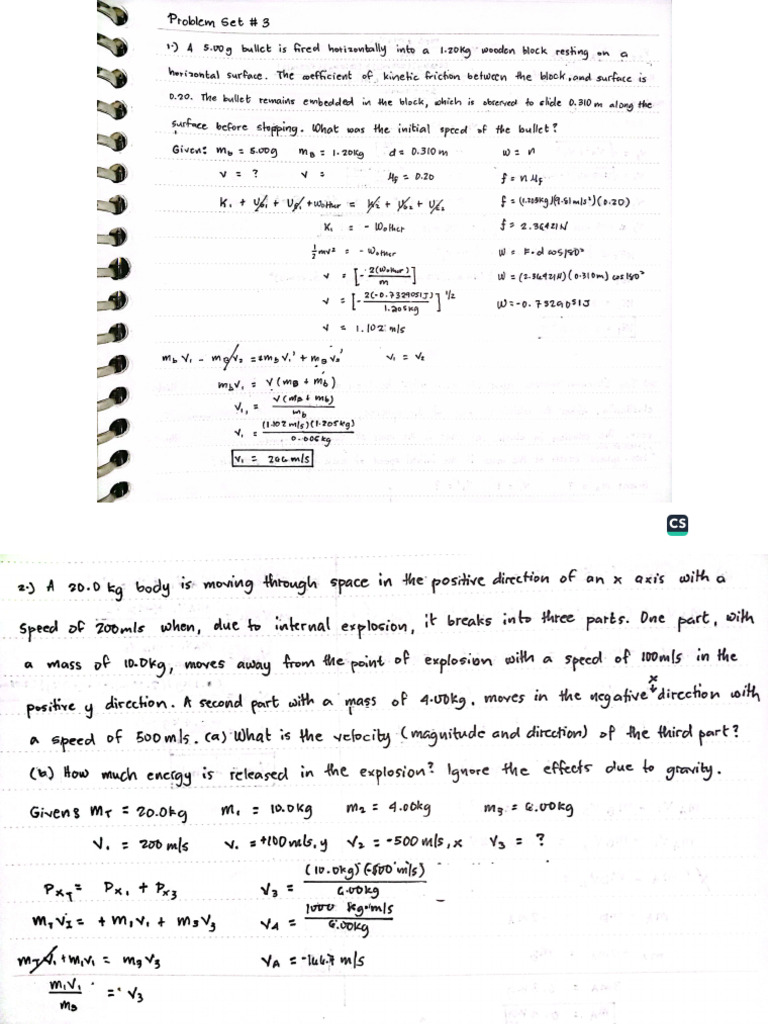 Problem Set # 3
1.) A 5.00g bullet is fired horizontally into a 1.20kg wooden block resting on a
horizontal surface. The coefficient of kinetic friction between the block, and surface is
0.20. The bullet remains embedded in the block, which is observed to slide 0.310 m along the
surface before stopping. What was the initial speed of the bullet?
Given: m_b = 5.00g m_B = 1.20kg d = 0.310 m w = n
v = ? v = μ_f = 0.20 f = n μ_f
K₁ + U₁ + U₁ + Wother = K₂ + U₂ + U₂ f = (1.205kg)(9.81m/s²)(0.20)
K₁ = - Wother f = 2.36421N
½mv² = - Wother W = F·d cos180°
v = [- 2(Wother) / m] W = (2.36421N)(0.310m) cos180°
v = [- 2(-0.7329051J) / 1.205kg]^1/2 W = -0.7329051J
v = 1.102 m/s
m_b v₁ - m_B v₂ = m_b v₁' + m_B v₂' v₁ = v₂
m_b v₁ = v (m_B + m_b)
v₁ = v (m_B + m_b) / m_b
v₁ = (1.102 m/s)(1.205kg) / 0.005kg
v₁ = 266 m/s
CS
2.) A 20.0 kg body is moving through space in the positive direction of an x axis with a
speed of 200m/s when, due to internal explosion, it breaks into three parts. One part, with
a mass of 10.0kg, moves away from the point of explosion with a speed of 100m/s in the
positive y direction. A second part with a mass of 4.00kg, moves in the negative x direction with
a speed of 500m/s. (a) What is the velocity (magnitude and direction) of the third part?
(b) How much energy is released in the explosion? Ignore the effects due to gravity.
Given: m_T = 20.0kg m₁ = 10.0kg m₂ = 4.00kg m₃ = 6.00kg
v₁ = 200 m/s v₁ = +100m/s, y v₂ = -500m/s, x v₃ = ?
P_xT = P_x1 + P_x3 v₃ = (10.0kg)(-500 m/s) / 6.00kg
m_T v_I = + m₁v₁ + m₃v₃ v_A = 1000 kg·m/s / 6.00kg
m_T v₁ + m₁v₁ = m₃v₃ v_A = -166.7 m/s
m₁v₁ / m₃ = v₃